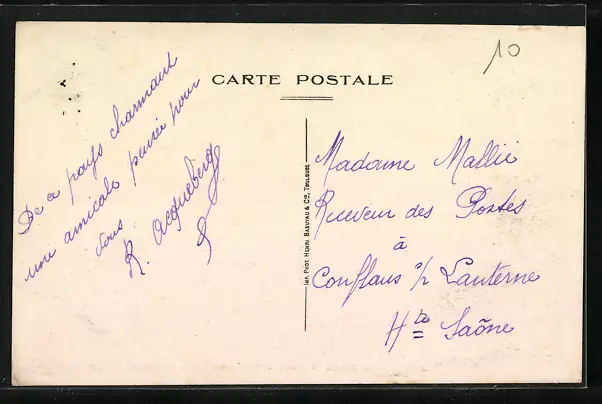 10
CARTE POSTALE
De ce pays charmant
une amicale pensée pour
vous
R. Acqueberg
Imp. Phot. Henri Basuyau & Cie, Toulouse
Madame Mallié
Receveur des Postes
à
Conflans s/ Lanterne
Hte Saône